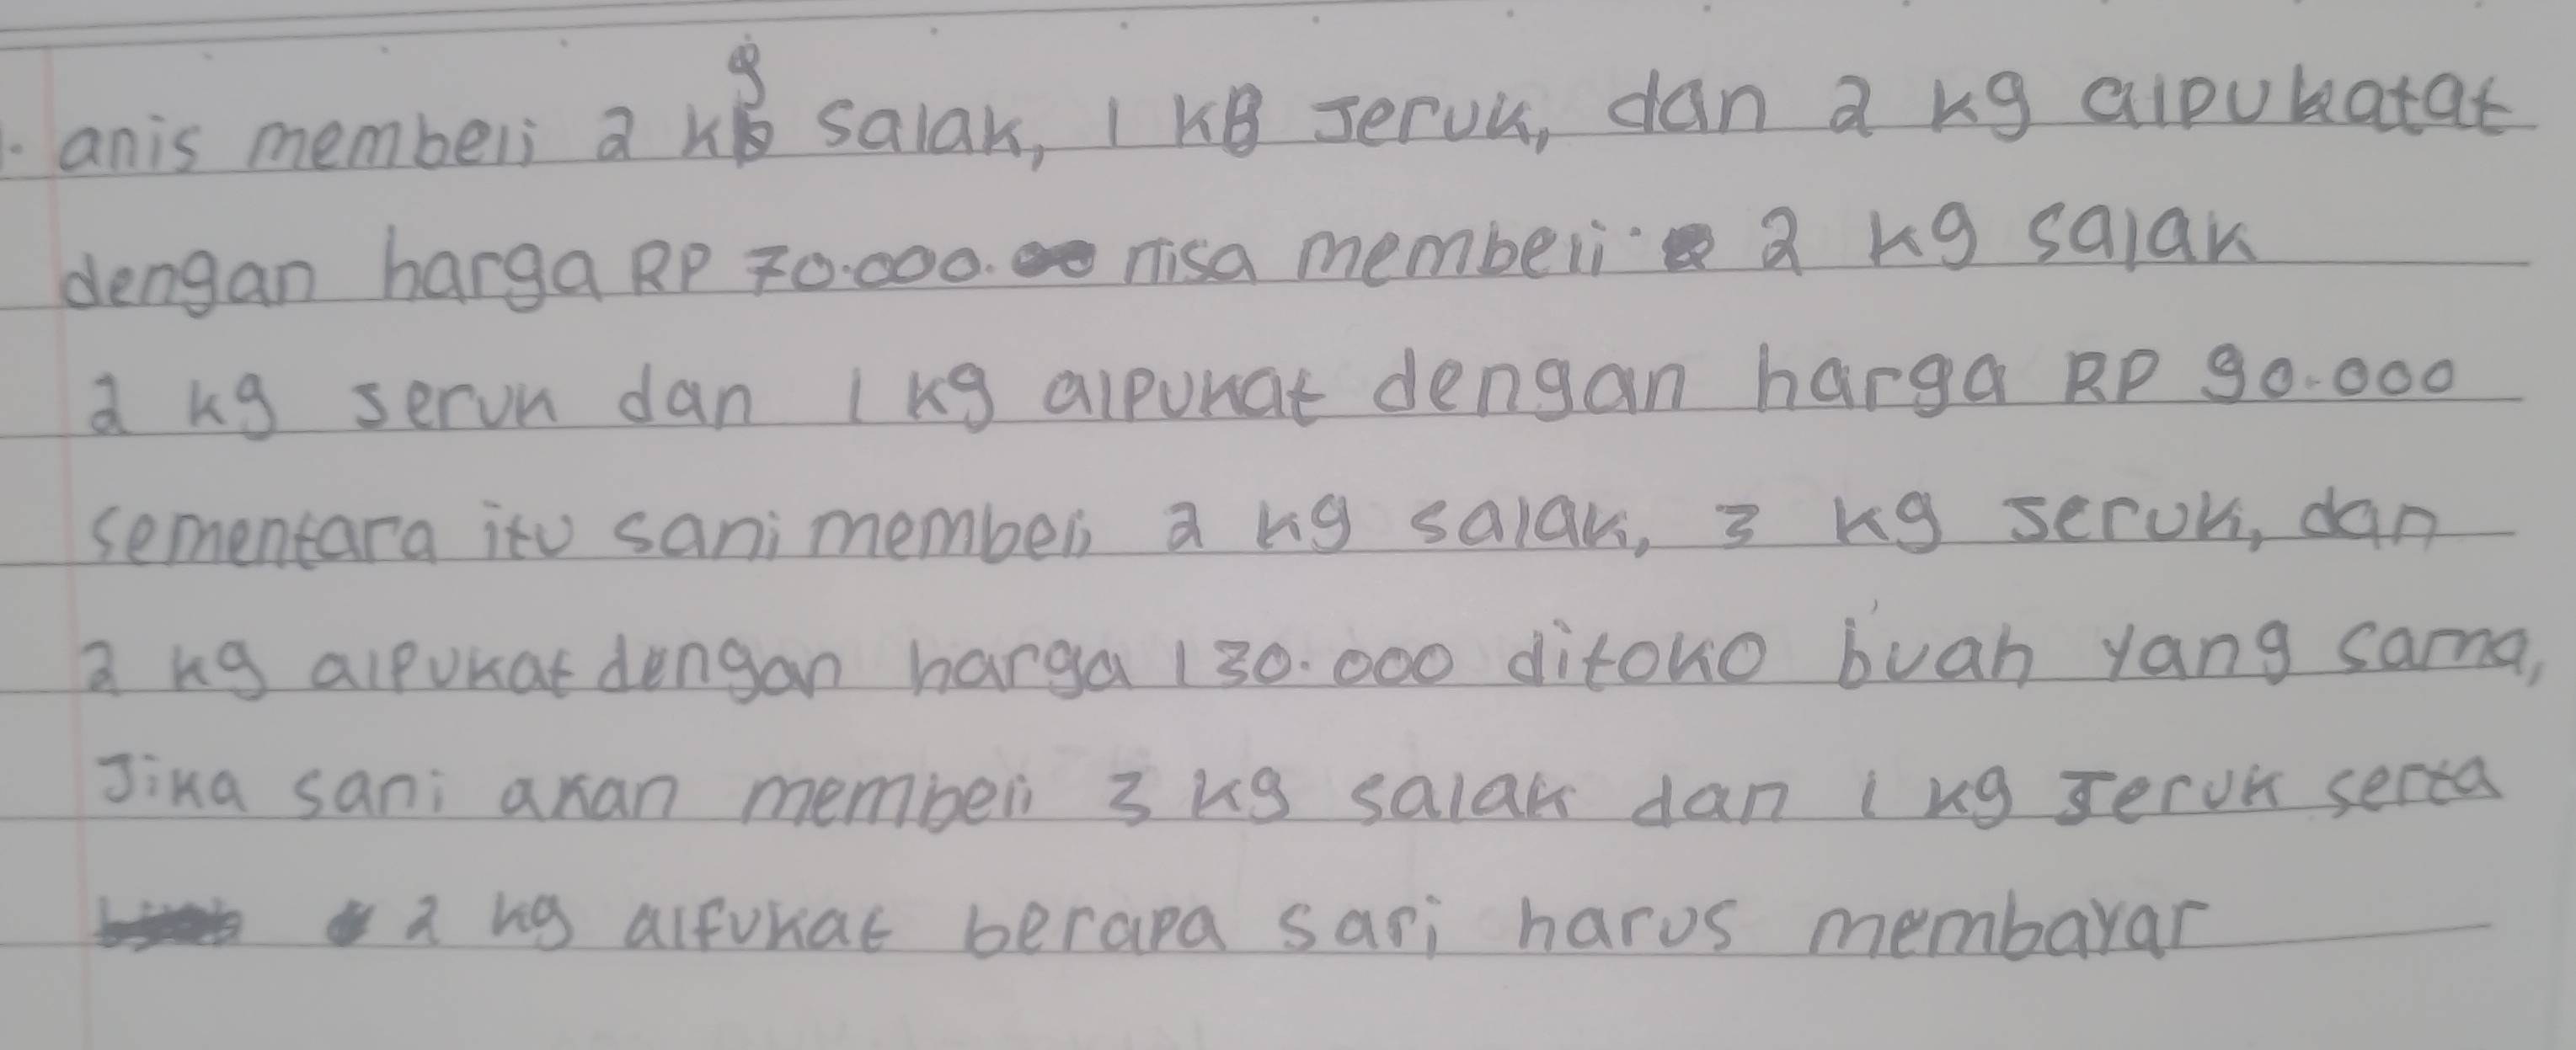 1. anis membeli 2 kg salak, 1 KB Jeruk, dan 2 kg alpukatat
dengan harga RP 70.000. nisa membeli 2 kg salak
2 kg seruk dan 1 kg alpukat dengan harga RP 90.000
sementara itu sani membeli 2 kg salak, 3 kg seruk, dan
2 kg alpukat dengan harga 130.000 ditoko buah yang sama,
Jika sani akan membeli 3 kg salak dan 1 kg Jeruk serta
2 kg alfukat berapa sari harus membayar